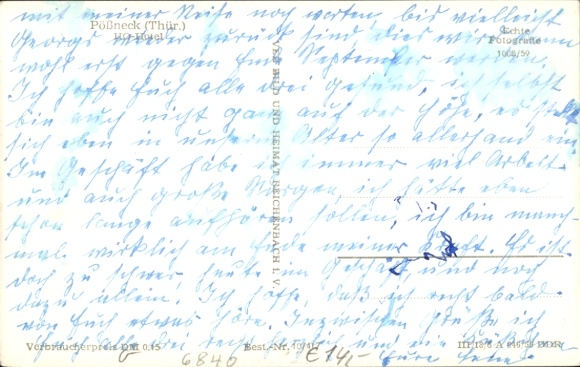 mit meiner Reise noch warten, bis vielleicht
Georgs wieder zurück sind, dies wird dann
wohl erst gegen Ende September werden.
Ich hoffe Euch alle drei gesund, ich selbst
bin auch nicht ganz auf der Höhe, es stellt
sich eben in unserem Alter so allerhand ein
Im Geschäft habe ich immer viel Arbeit
und auch große Sorgen, ich hätte eben
schon lange aufhören sollen, ich bin manch-
mal wirklich am Ende meiner Kraft. Es ist
doch zu schwer, heute im Geschäft und noch
dazu allein. Ich hoffe, daß ich recht bald
von Euch etwas höre. Inzwischen grüße ich
Euch alle
Eure
Pößneck (Thür.)
HO-Hotel
Echte
Fotografie
VEB BILD UND HEIMAT REICHENBACH I. V.
Verbraucherpreis DM 0,15
Best.-Nr.
DDR
6840
€ 14,-